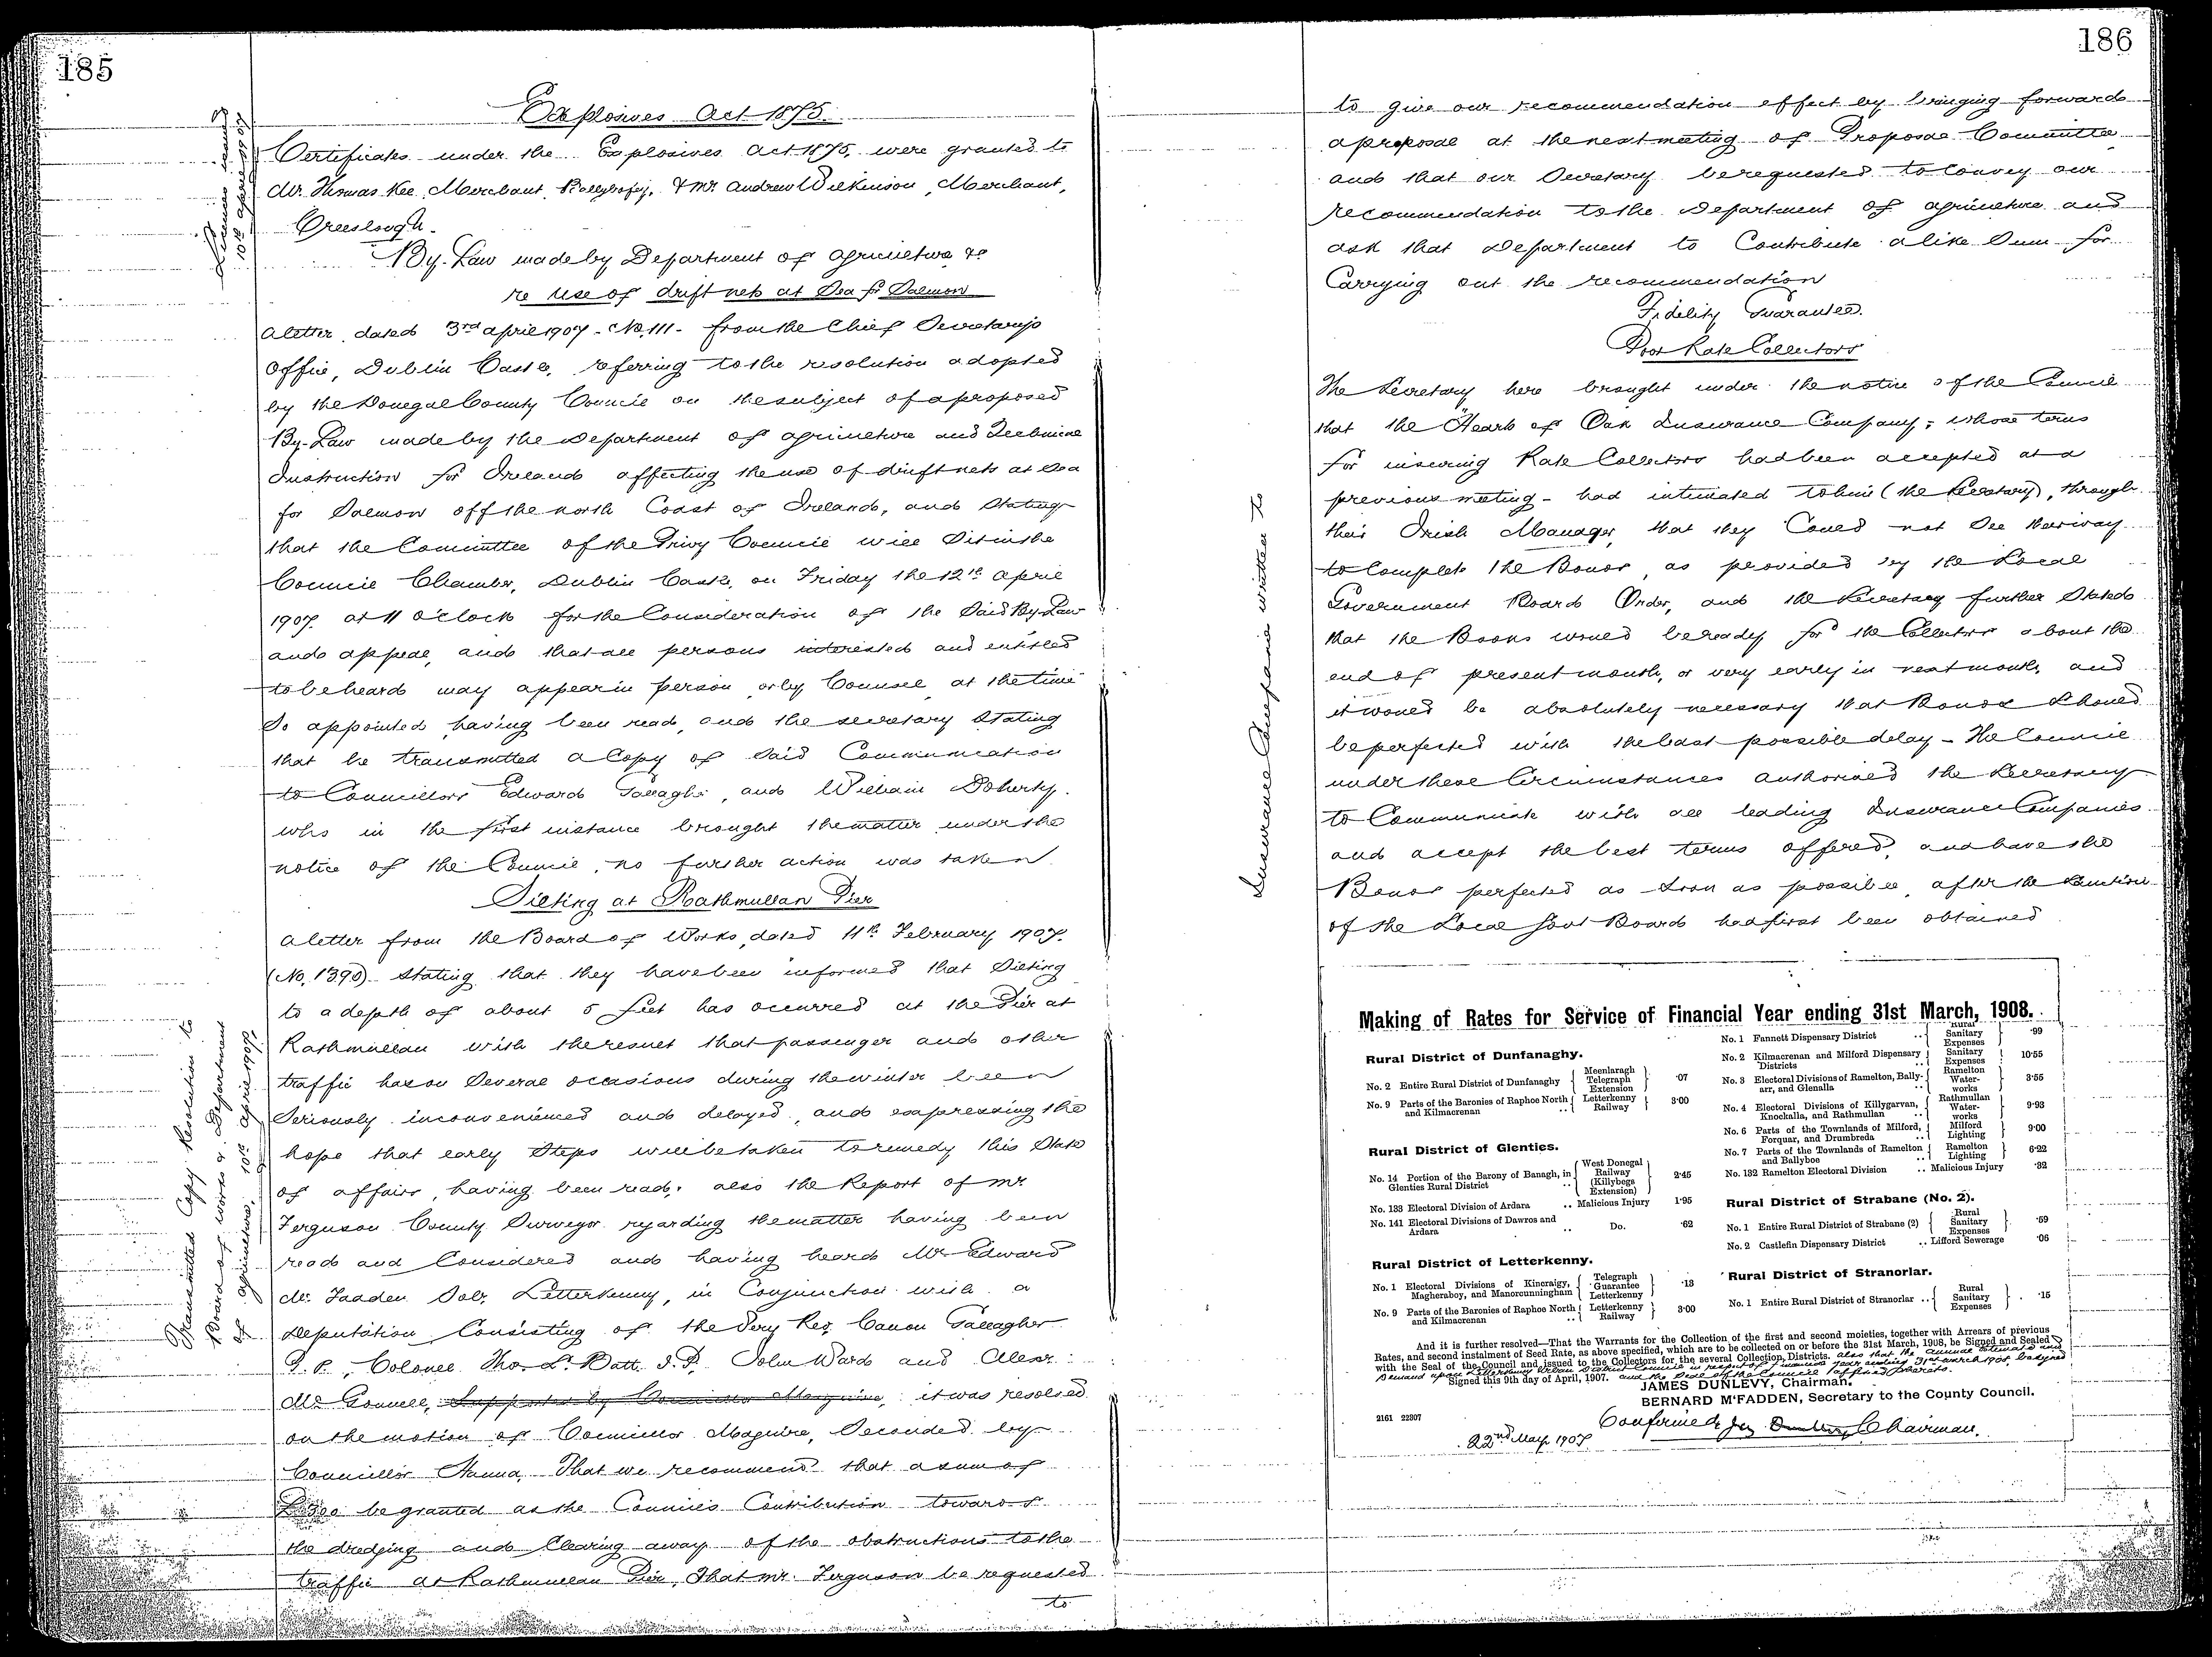 185
Explosives Act 1875.
Licences issued
10th April 1907
Certificates under the Explosives Act 1875, were granted to
Mr. Thomas Kee, Merchant, Ballybofey, & Mr Andrew Wilkinson, Merchant,
Creeslough.
By-Law made by Department of Agriculture &c
re use of drift nets at Sea for Salmon
A letter dated 3rd April 1907 - No. 111 - from the Chief Secretary's
Office, Dublin Castle, referring to the resolution adopted
by the Donegal County Council on the subject of a proposed
By-Law made by the Department of Agriculture and Technical
Instruction for Ireland affecting the use of drift nets at Sea
for Salmon off the north Coast of Ireland, and Stating
that the Committee of the Privy Council will Sit in the
Council Chamber, Dublin Castle, on Friday the 12th April
1907. at 11 o'clock for the Consideration of the Said By-Law
and appeal, and that all persons interested and entitled
to be heard may appear in person or by Counsel at the time
So appointed, having been read, and the secretary Stating
that he transmitted a Copy of Said Communication
to Councillors Edward Gallagher, and William Doherty.
who in the first instance brought the matter under the
notice of the Council, no further action was taken
Silting at Rathmullan Pier
A letter from the Board of Works, dated 11th February 1907.
(No. 1390) stating that they have been informed that Silting
to a depth of about 5 feet has occurred at the Pier at
Rathmullan with the result that passenger and other
traffic has on Several occasions during the winter been
Seriously inconvenienced and delayed, and expressing the
hope that early Steps will be taken to remedy this State
of affairs, having been read, also the Report of Mr
Ferguson County Surveyor regarding the matter having been
read and Considered and having heard Mr Edward
Mc Fadden Solr, Letterkenny, in Conjunction with a
Deputation Consisting of the Very Rev. Canon Gallagher
P. P., Colonel Tho. L. Batt. J.P. John Ward and Alexr.
McConnell, Supported by Councillor Maguire, it was resolved
on the motion of Councillor Maguire, Seconded by
Councillor Hanna, That we recommend that a sum of
£300 be granted as the Council's Contribution towards
the dredging and Clearing away of the obstructions to the
traffic at Rathmullan Pier, That Mr. Ferguson be requested
to
Transmitted Copy Resolution to
Board of Works & Department
of Agriculture, 10th April 1907.
186
to give our recommendation effect by bringing forward
a proposal at the next meeting of Proposal Committee
and that our Secretary be requested to Convey our
recommendation to the Department of Agriculture and
ask that Department to Contribute a like Sum for
Carrying out the recommendation
Fidelity Guarantee.
Poor Rate Collectors
The Secretary here brought under the notice of the Council
that the "Hearts of Oak Insurance Company", whose terms
for insuring Rate Collectors had been accepted at a
previous meeting - had intimated to him (the Secretary), through
their Irish Manager, that they Could not See their way
to Complete the Bonds, as provided by the Local
Government Board Order, and the Secretary further Stated
that the Books would be ready for the Collectors about the
end of present month, or very early in next month, and
it would be absolutely necessary that Bonds Should
be perfected with the least possible delay - The Council
under these Circumstances authorised the Secretary
to Communicate with all leading Insurance Companies
and accept the best terms offered, and have the
Bonds perfected as Soon as possible, after the Sanction
of the Local Govt Board had first been obtained
Insurance Companies written to
Making of Rates for Service of Financial Year ending 31st March, 1908.
Rural District of Dunfanaghy.
No. 2 Entire Rural District of Dunfanaghy { Meenlaragh Telegraph Extension } ·07
No. 9 Parts of the Baronies of Raphoe North and Kilmacrenan .. { Letterkenny Railway } 3·00
Rural District of Glenties.
No. 14 Portion of the Barony of Banagh, in Glenties Rural District .. { West Donegal Railway (Killybegs Extension) } 2·45
No. 133 Electoral Division of Ardara .. Malicious Injury 1·95
No. 141 Electoral Divisions of Dawros and Ardara .. Do. ·62
Rural District of Letterkenny.
No. 1 Electoral Divisions of Kincraigy, Magheraboy, and Manorcunningham { Telegraph Guarantee Letterkenny } ·13
No. 9 Parts of the Baronies of Raphoe North and Kilmacrenan .. { Letterkenny Railway } 3·00
No. 1 Fannett Dispensary District .. { Rural Sanitary Expenses } ·99
No. 2 Kilmacrenan and Milford Dispensary Districts .. { Sanitary Expenses } 10·55
No. 3 Electoral Divisions of Ramelton, Ballyarr, and Glenalla .. { Ramelton Water-works } 3·55
No. 4 Electoral Divisions of Killygarvan, Knockalla, and Rathmullan .. { Rathmullan Water-works } 9·93
No. 6 Parts of the Townlands of Milford, Forquar, and Drumbreda .. { Milford Lighting } 9·00
No. 7 Parts of the Townlands of Ramelton and Ballyboe .. { Ramelton Lighting } 6·22
No. 132 Ramelton Electoral Division .. Malicious Injury ·32
Rural District of Strabane (No. 2).
No. 1 Entire Rural District of Strabane (2) { Rural Sanitary Expenses } ·59
No. 2 Castlefin Dispensary District .. Lifford Sewerage ·06
Rural District of Stranorlar.
No. 1 Entire Rural District of Stranorlar .. { Rural Sanitary Expenses } ·15
And it is further resolved—That the Warrants for the Collection of the first and second moieties, together with Arrears of previous
Rates, and second instalment of Seed Rate, as above specified, which are to be collected on or before the 31st March, 1908, be Signed and Sealed
with the Seal of the Council and issued to the Collectors for the several Collection Districts. also that the annual estimate and
Demand upon Letterkenny Urban District Council in respect of financial year ending 31st March 1908, be signed
and the Seal of the Council affixed thereto.
Signed this 9th day of April, 1907.
JAMES DUNLEVY, Chairman.
BERNARD M'FADDEN, Secretary to the County Council.
2161 22307
Confirmed, Jas Dunlevy Chairman.
22nd May 1907